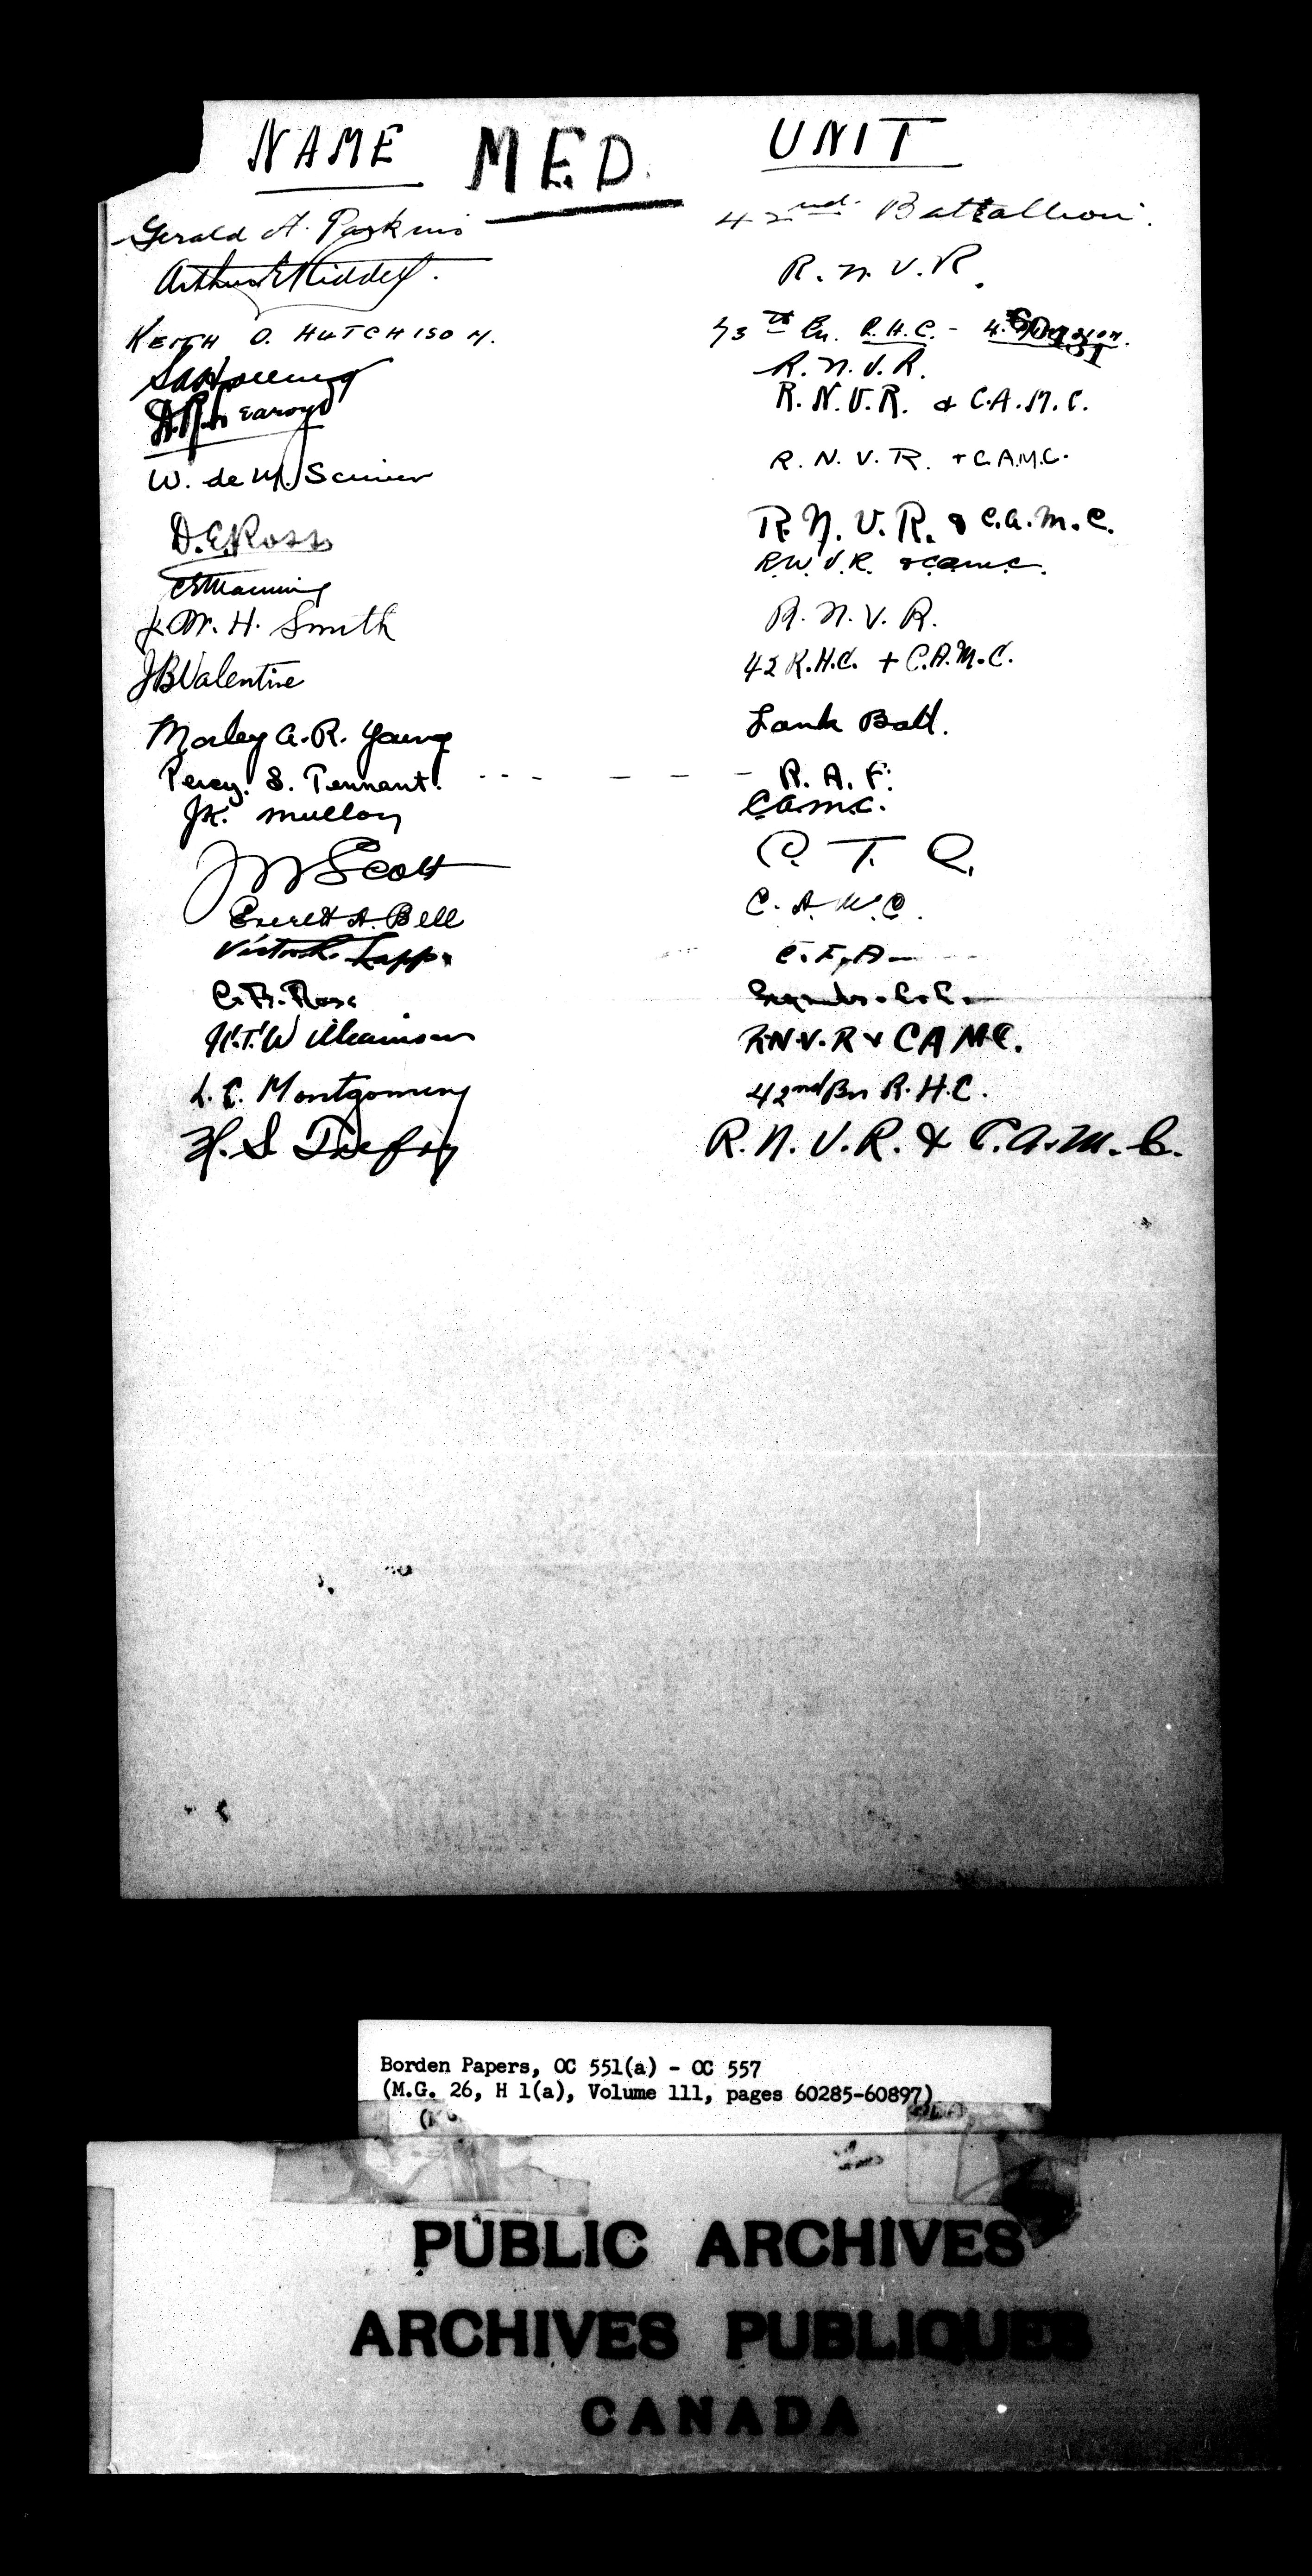 NAME MED. UNIT
Gerald A. Parkins 42nd Battallion.
Arthur R.N.V.R.
KEITH O. HUTCHISON. 73rd Bn. R.H.C. -
60431
R.N.V.R.
R.N.V.R. & C.A.M.C.
W. de M. Scriver R.N.V.R. + C.A.M.C.
D.E. Ross R.N.V.R. & C.A.M.C.
Manning R.N.V.R. & C.A.M.C.
W. H. Smith R.N.V.R.
J B Valentine 42 R.H.C. + C.A.M.C.
Morley A.R. Young Tank Batt.
Percy S. Tennant. - - - - - - R.A.F.
J.K. Mulloy C.A.M.C.
Scott
Everett A. Bell C.A.M.C.
Victor Lapp. C.F.A.
C.B. Rose
H.T. Williamson R.N.V.R & CAMC.
L.C. Montgomery 42nd Bn R.H.C.
H.S. Trefry R.N.V.R. & C.A.M.C.
Borden Papers, OC 551(a) - OC 557
(M.G. 26, H 1(a), Volume 111, pages 60285-60897)
PUBLIC ARCHIVES
ARCHIVES PUBLIQUES
CANADA